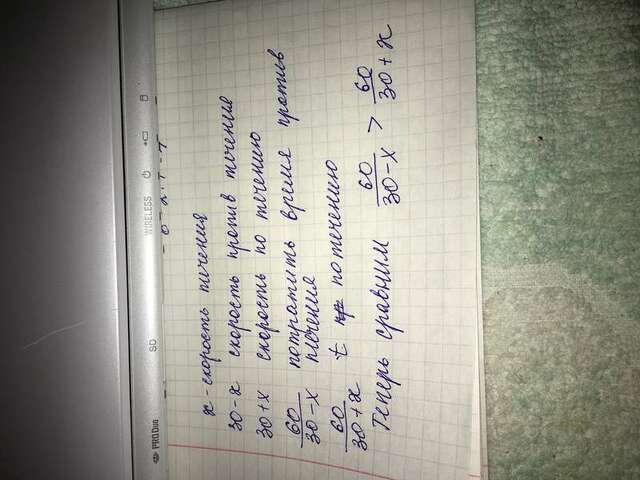 PRO Duo SD WIRELESS
x - скорость течения
30-x скорость против течения
30+x скорость по течению
60/30-x потратить время против течения
60/30+x t по течению
Теперь сравним 60/30-x > 60/30+x